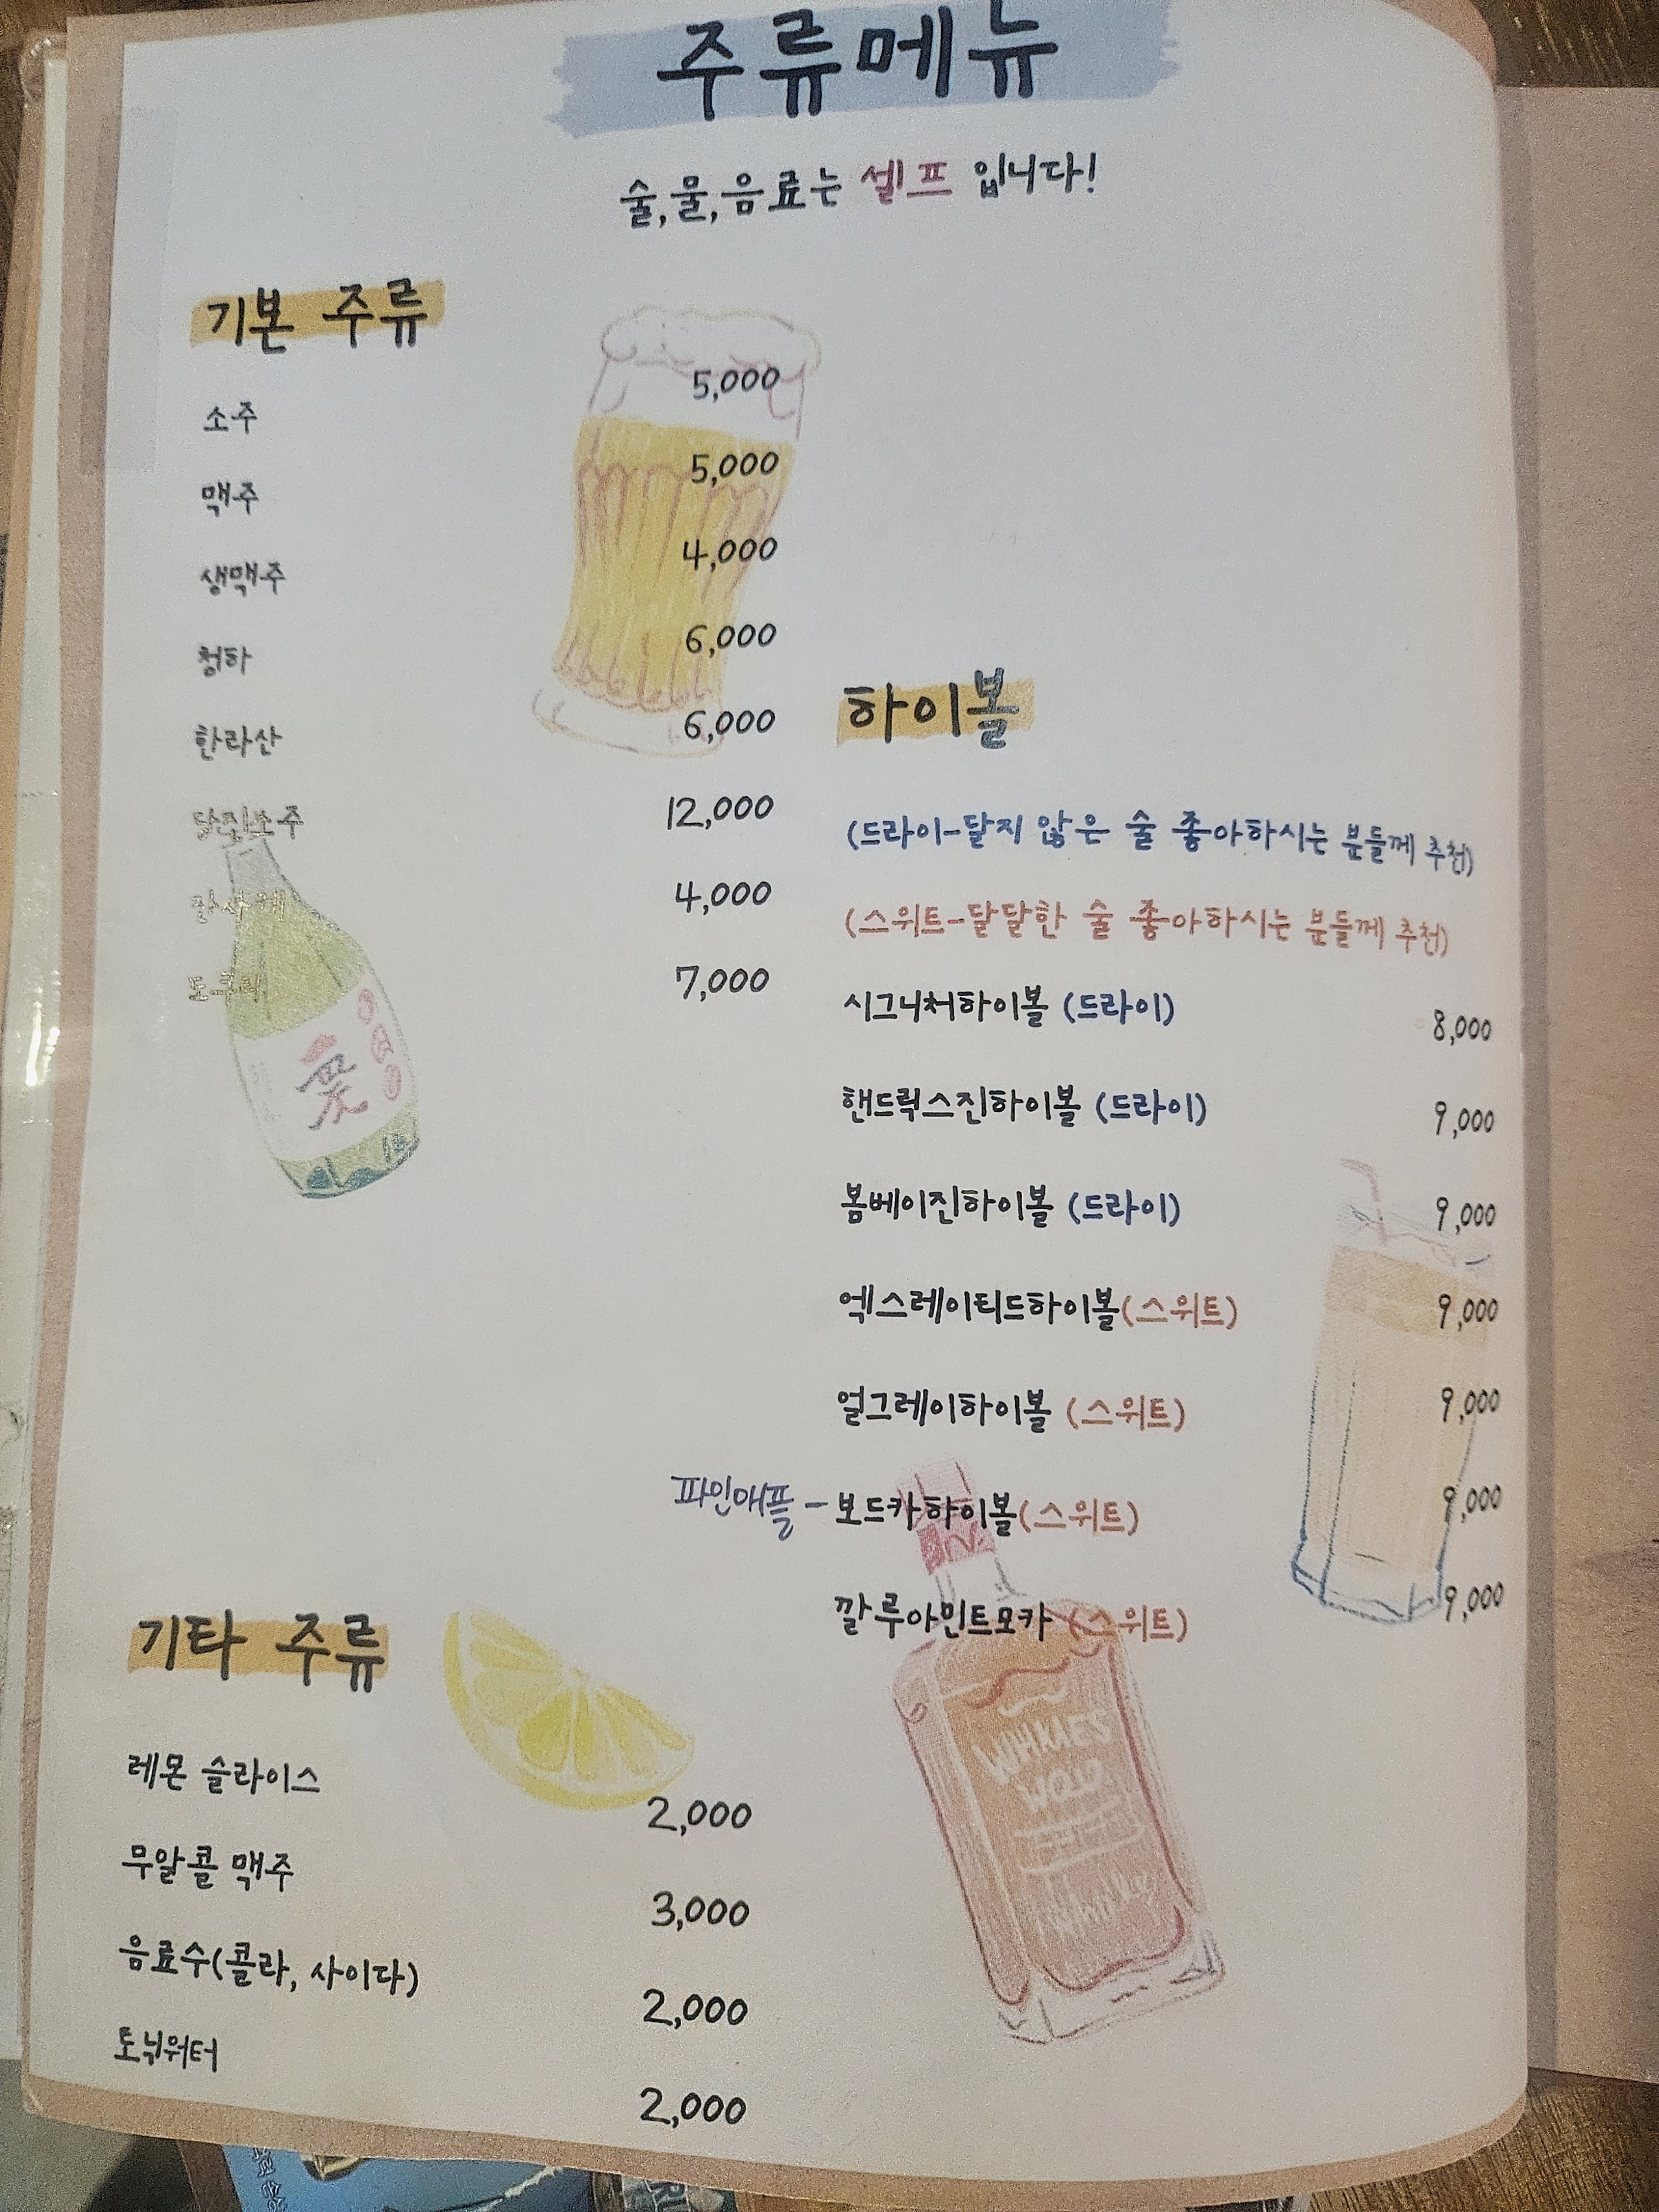 주류메뉴
술,물,음료는 셀프 입니다!
기본 주류
소주 5,000
맥주 5,000
생맥주 4,000
청하 6,000
한라산 6,000
12,000
4,000
도쿠리 7,000
하이볼
(드라이-달지 않은 술 좋아하시는 분들께 추천)
(스위트-달달한 술 좋아하시는 분들께 추천)
시그니처하이볼 (드라이) 8,000
핸드릭스진하이볼 (드라이) 9,000
봄베이진하이볼 (드라이) 9,000
엑스레이티드하이볼(스위트) 9,000
얼그레이하이볼 (스위트) 9,000
파인애플 - 보드카하이볼(스위트) 9,000
깔루아민트모카 (스위트) 9,000
기타 주류
레몬 슬라이스 2,000
무알콜 맥주 3,000
음료수(콜라, 사이다) 2,000
토닉워터 2,000